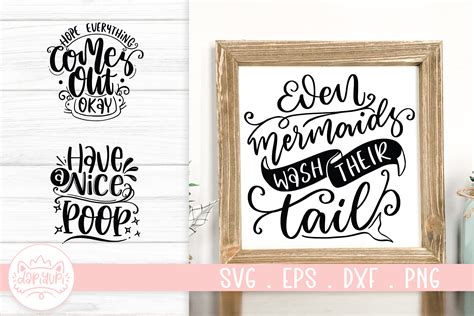 HOPE EVERYTHING
Comes
Out
OKAY
HAVE
a NICE
POOP
Even
mermaids
WASH THEIR
tail
SVG . EPS . DXF . PNG